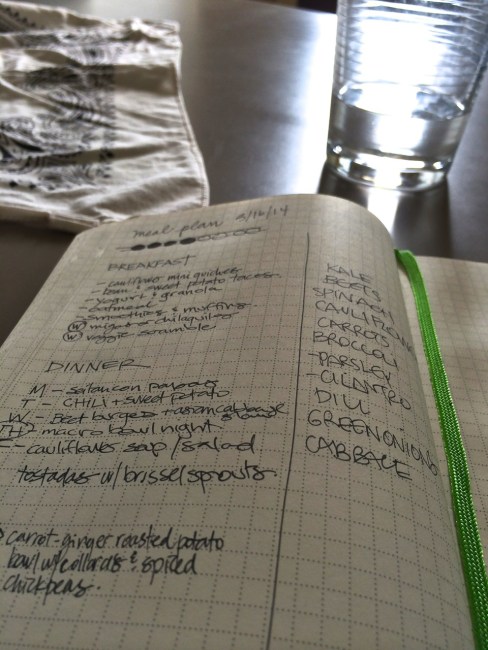 meal plan 3/16/14
BREAKFAST
- cauliflower mini quiches
- bean & sweet potato tacos
- yogurt & granola
- oatmeal
- smoothies & muffins
(W) migas or chilaquiles
(W) veggie scramble
DINNER
M -
T - CHILI + sweet potato
W - Beet burgers + asian cabbage
TH) macro bowl night
F - cauliflower soup / salad
tostadas w/ brissel sprouts
carrot-ginger roasted potato
bowl w/ collards & spiced
chickpeas.
KALE
BEETS
SPINACH
CAULIFLOWER
CARROTS
BROCCOLI
- PARSLEY
- CILANTRO
DILL
GREEN ONIONS
CABBAGE